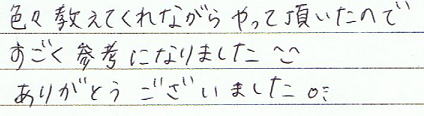 色々教えてくれながらやって頂いたので
すごく参考になりました ^^
ありがとうございました。